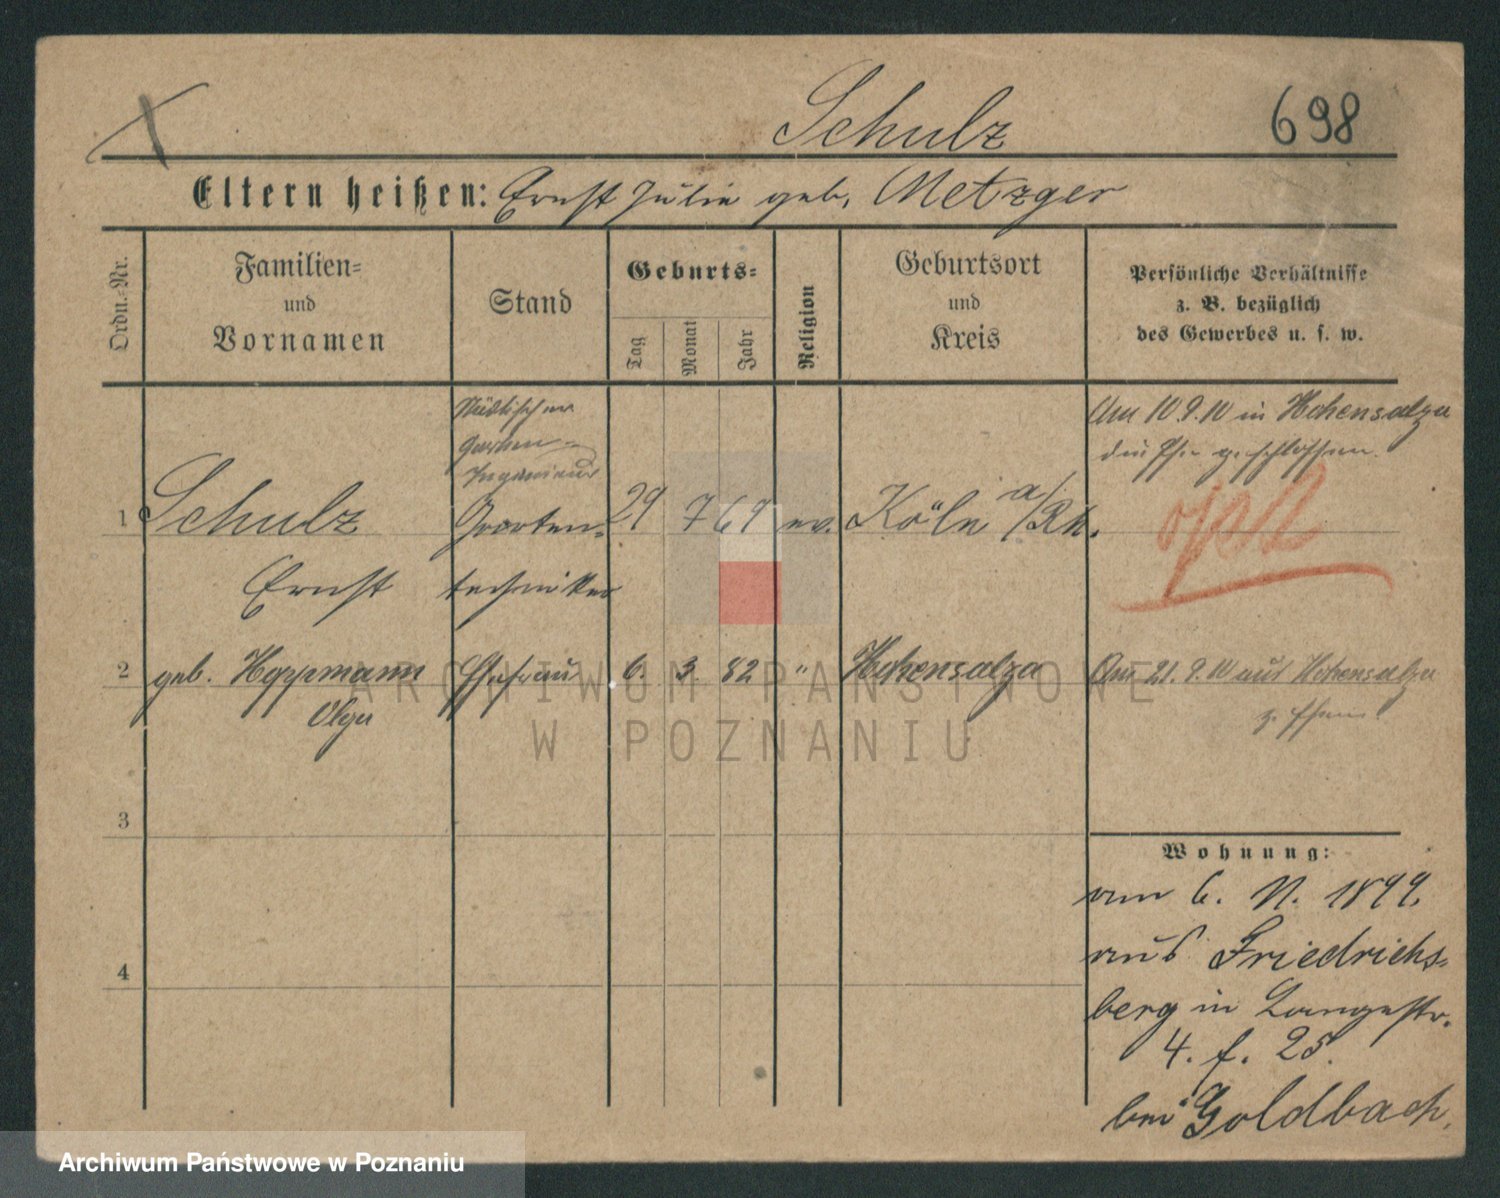 Schulz
698
Eltern heißen: Ernst Julie geb. Metzger
Ordn.-Nr.
Familien-
und
Vornamen
Stand
Geburts-
Tag
Monat
Jahr
Religion
Geburtsort
und
Kreis
Persönliche Verhältnisse
z. B. bezüglich
des Gewerbes u. s. w.
Städtischer
Garten-
Ingenieur
Am 10 9.10 in Hohensalza
die Ehe geschlossen.
1 Schulz Garten- 29 7 69 ev. Köln a/Rh.
Ernst techniker
2 geb. Hoppmann Ehefrau 6. 3. 82 " Hohensalza Am 21. 9. 10 aus Hohensalza
Olga z. Ehem.
3
Wohnung:
am 6. N. 1899.
aus Friedrichs-
4
berg in Langestr.
4. f. 25.
bei Goldbach.
ARCHIWUM PAŃSTWOWE
W POZNANIU
Archiwum Państwowe w Poznaniu